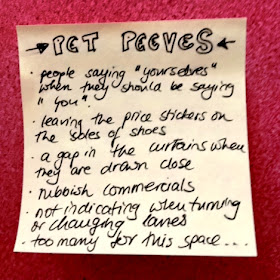 →PET PEEVES←
· people saying "yourselves"
when they should be saying
"you".
· leaving the price stickers on
the soles of shoes
· a gap in the curtains when
they are drawn close
· rubbish commercials
· not indicating when turning
or changing lanes
· too many for this space...